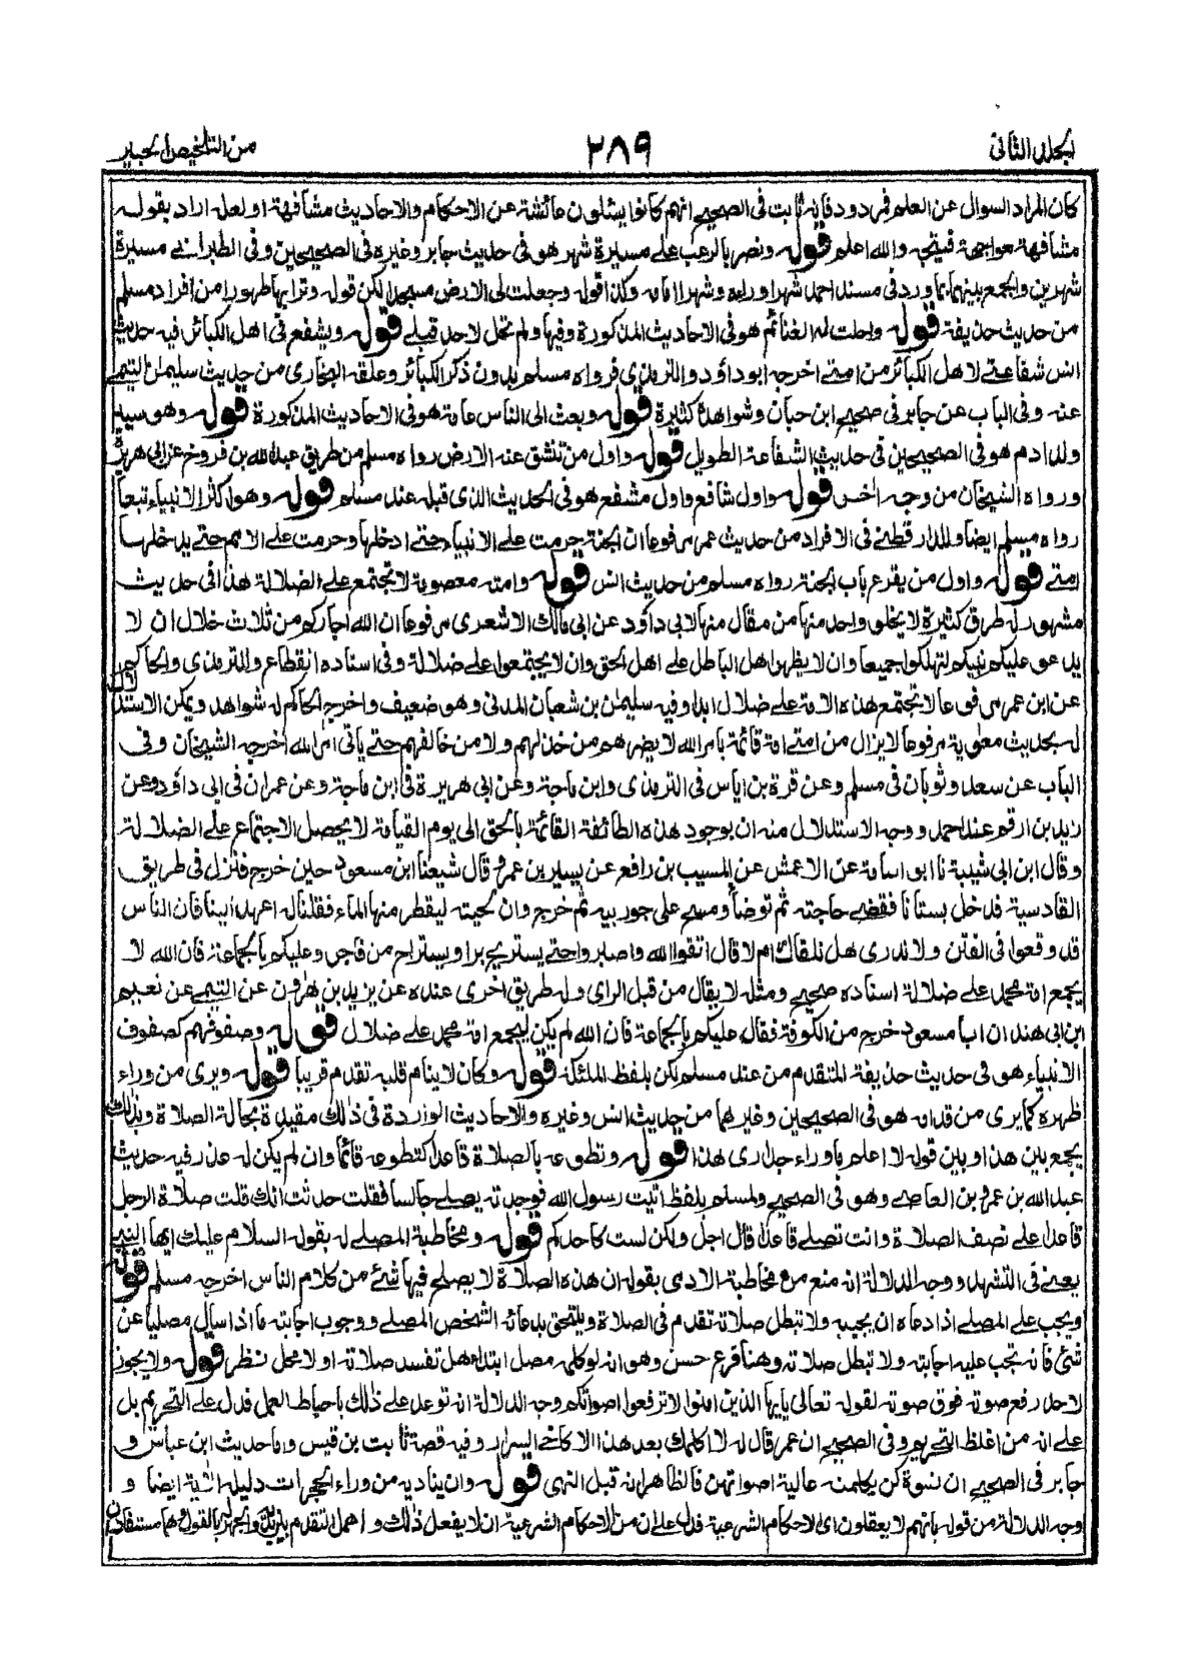 الجلد الثانى
٢٨٩
من التلخيص الحبير
كان المراد السوال عن العلم فمردود فانه ثابت فى الصحيح انهم كانوا يسئلون عائشة عن الاحكام والاحاديث مشافهة او لعله اراد بقوله
مشافهة مواجهة فيتجه والله اعلم قوله ونصر بالرعب على مسيرة شهر هو فى حديث جابر وغيره فى الصحيحين وفى الطبرانى مسيرة
شهرين والجمع بينهما بما ورد فى مسند احمد شهرا وراءه وشهرا امامه وكذا قوله وجعلت لى الارض مسجدا لكن قوله وترابها طهورا من افراد مسلم
من حديث حذيفة قوله واحلت له الغنائم هو فى الاحاديث المذكورة وفيها ولم تحل لاحد قبلى قوله ويشفع فى اهل الكبائر فيه حديث
انس شفاعتى لاهل الكبائر من امتى اخرجه ابو داؤد والترمذى فرواه مسلم بدون ذكر الكبائر وعلقه البخارى من حديث سليمن التيمى
عنه وفى الباب عن جابر فى صحيح ابن حبان وشواهده كثيرة قوله وبعث الى الناس عامة هو فى الاحاديث المذكورة قوله وهو سيد
ولد ادم هو فى الصحيحين فى حديث الشفاعة الطويل قوله واول من تنشق عنه الارض رواه مسلم من طريق عبد الله بن فروخ عن ابى هريرة
ورواه الشيخان من وجه اخر قوله واول شافع واول مشفع هو فى الحديث الذى قبله عند مسلم قوله وهو اكثر الانبياء تبعا
رواه مسلم ايضا وللدارقطنى فى الافراد من حديث عمر مرفوعا ان الجنة حرمت على الانبياء حتى ادخلها وحرمت على الامم حتى يدخلها
امتى قوله واول من يقرع باب الجنة رواه مسلم من حديث انس قوله وامته معصومة لا تجتمع على الضلالة هذا فى حديث
مشهور له طرق كثيرة لا يخلو واحد منها من مقال منها لابى داؤد عن ابى مالك الاشعرى مرفوعا ان الله اجاركم من ثلاث خلال ان لا
يدعو عليكم نبيكم لتهلكوا جميعا وان لا يظهر اهل الباطل على اهل الحق وان لا يجتمعوا على ضلالة وفى اسناده انقطاع وللترمذى والحاكم
عن ابن عمر مرفوعا لا تجتمع هذه الامة على ضلال ابدا وفيه سليمن بن شعبان المدنى وهو ضعيف واخرجه الحاكم له شواهد ويمكن الاستدلال
له بحديث معوية مرفوعا لا يزال من امتى امة قائمة بامر الله لا يضرهم من خذلهم ولا من خالفهم حتى ياتى امر الله اخرجه الشيخان وفى
الباب عن سعد وثوبان فى مسلم وعن قرة بن اياس فى الترمذى وابن ماجة وعن ابى هريرة فى ابن ماجة وعن عمران فى ابى داؤد وعن
زيد بن ارقم عند احمد ووجه الاستدلال منه ان بوجود هذه الطائفة القائمة بالحق الى يوم القيامة لا يحصل الاجتماع على الضلالة
وقال ابن ابى شيبة نا ابو اسامة عن الاعمش عن المسيب بن رافع عن يسير بن عمرو قال شيعنا ابن مسعود حين خرج فنزل فى طريق
القادسية فدخل بستانا فقضى حاجته ثم توضأ ومسح على جوربيه ثم خرج وان لحيته ليقطر منها الماء فقلنا له اعهد الينا فان الناس
قد وقعوا فى الفتن ولا ندرى هل نلقاك ام لا قال اتقوا الله واصبروا حتى يستريح بر او يستراح من فاجر وعليكم بالجماعة فان الله لا
يجمع امة محمد على ضلالة اسناده صحيح ومثله لا يقال من قبل الراى وله طريق اخرى عنده عن يزيد بن هرون عن التيمى عن نعيم
ابن ابى هند ان ابا مسعود خرج من الكوفة فقال عليكم بالجماعة فان الله لم يكن ليجمع امة محمد على ضلال قوله وصفوفهم كصفوف
الانبياء هو فى حديث حذيفة المتقدم من عند مسلم لكن بلفظ الملئكة قوله وكان لا ينام قلبه تقدم قريبا قوله ويرى من وراء
ظهره كما يرى من قدامه هو فى الصحيحين وغيرهما من حديث انس وغيره والاحاديث الواردة فى ذلك مقيدة بحالة الصلاة وبذلك
يجمع بين هذا وبين قوله لا اعلم ما وراء جدارى هذا قوله وتطوعه بالصلاة قاعدا كتطوعه قائما وان لم يكن له عذر فيه حديث
عبد الله بن عمرو بن العاصى وهو فى الصحيح ولمسلم بلفظ اتيت رسول الله فوجدته يصلى جالسا فقلت حدثت انك قلت صلاة الرجل
قاعدا على نصف الصلاة وانت تصلى قاعدا قال اجل ولكن لست كاحدكم قوله ومخاطبة المصلى له بقوله السلام عليك ايها النبى
يعنى فى التشهد ووجه الدلالة انه منع من مخاطبة الادمى بقوله ان هذه الصلاة لا يصلح فيها شئ من كلام الناس اخرجه مسلم قوله
ويجب على المصلى اذا دعاه ان يجيبه ولا تبطل صلاته تقدم فى الصلاة ويلتحق بدعائه الشخص المصلى ووجوب اجابته ما اذا سأل مصليا عن
شئ فانه تجب عليه اجابته ولا تبطل صلاته وهنا فرع حسن وهو انه لو كلمه مصل ابتداء هل تفسد صلاته او لا محل نظر قوله ولا يجوز
لاحد رفع صوته فوق صوته لقوله تعالى يايها الذين امنوا لا ترفعوا اصواتكم وجه الدلالة انه توعد على ذلك باحباط العمل فدل على التحريم بل
على انه من اغلظ التحريم وفى الصحيح ان عمر قال له لا اكلمك بعد هذا الا كاخى السرار وفيه قصة ثابت بن قيس واما حديث ابن عباس و
جابر فى الصحيح ان نسوة كن يكلمنه عالية اصواتهن فالظاهر انه قبل النهى قوله وان يناديه من وراء الحجرات دليله الاية ايضا و
وجه الدلالة من قوله بانهم لا يعقلون اى الاحكام الشرعية فدل على ان من الاحكام الشرعية ان لا يفعل ذلك و